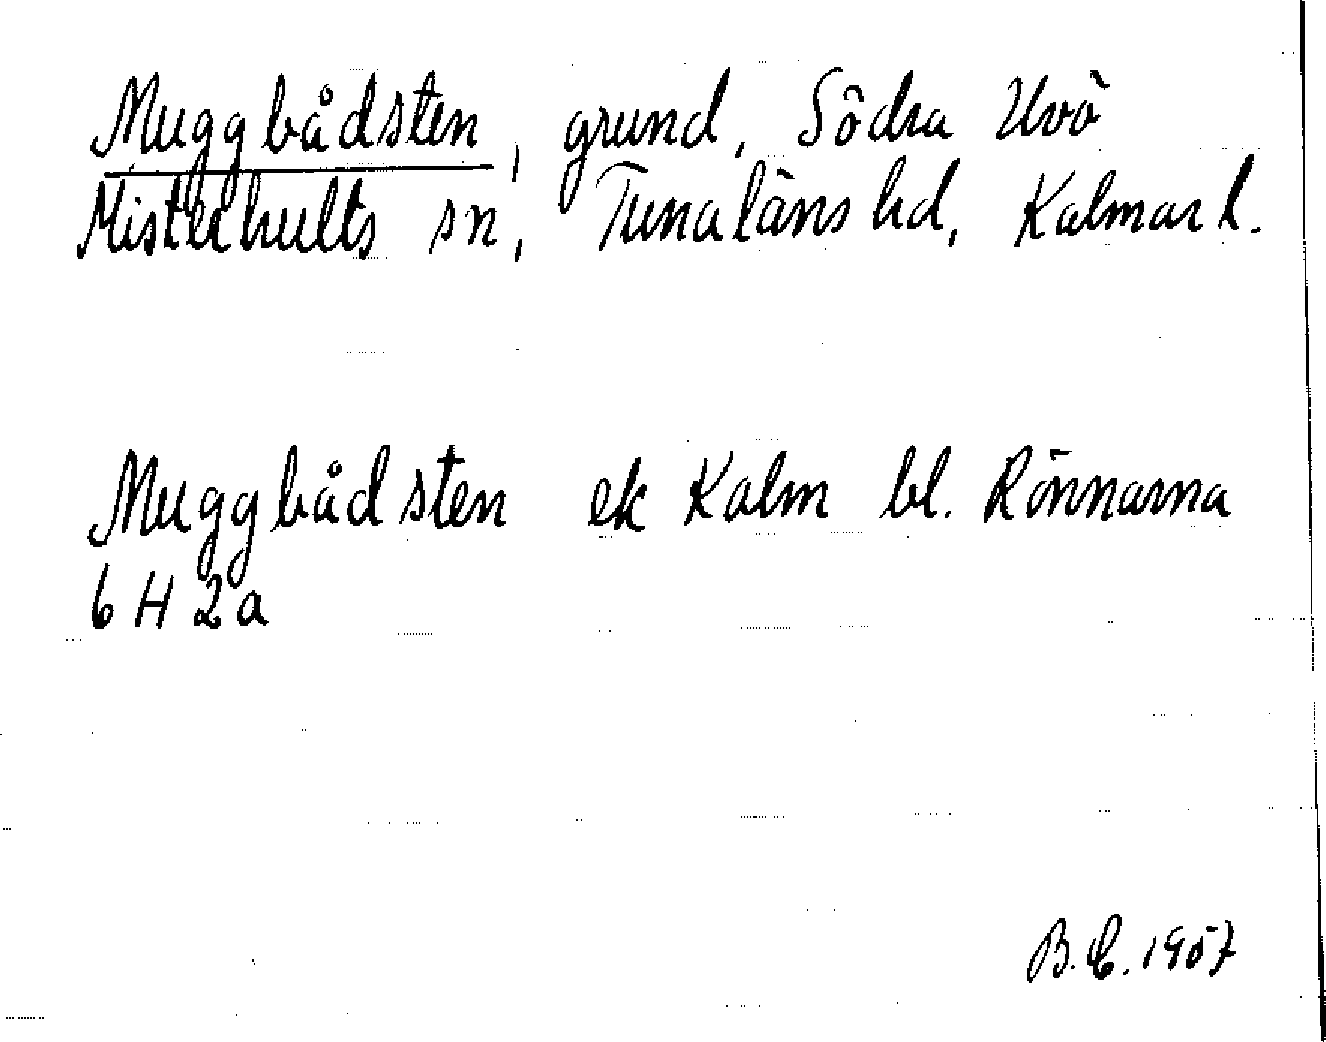 Muggbådsten, grund, Södra Uvö
Misterhults sn, Tunaläns hd, Kalmar l.
Muggbådsten ek Kalm bl. Rönnarna
6 H 2a
B.E. 1957